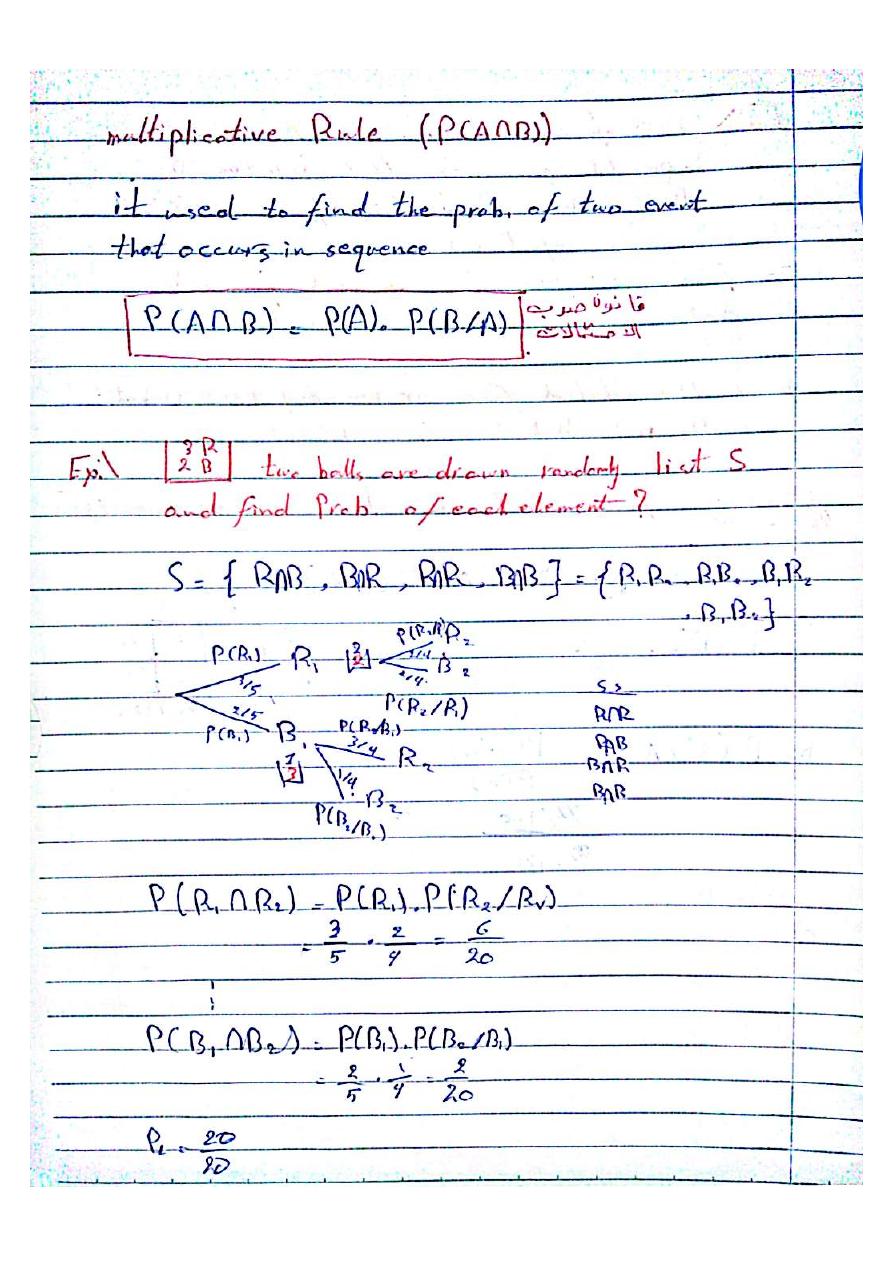 multiplicative Rule (P(A∩B))
it used to find the prob. of two event
that occurs in sequence
P(A∩B) = P(A). P(B/A)
قانون ضرب
الاحتمالات
Ex:\ 3 R
2 B
two balls are drawn randomly list S
and find Prob. of each element ?
S = { R∩B , B∩R , R∩R , B∩B } = { R₁R₂ , R₁B₂ , B₁R₂
, B₁B₂ }
P(R₁) 3/5 R₁
2
2
P(R₂/R₁) R₂
2/4 B₂
P(R₂/R₁)
2/5 P(B₁) B₁
1
3
P(R₂/B₁) 3/4 R₂
1/4 B₂
P(B₂/B₁)
R∩R
R∩B
B∩R
B∩B
P(R₁∩R₂) = P(R₁).P(R₂/R₁)
= 3/5 . 2/4 = 6/20
P(B₁∩B₂) = P(B₁).P(B₂/B₁)
= 2/5 . 1/4 = 2/20
= 20/20